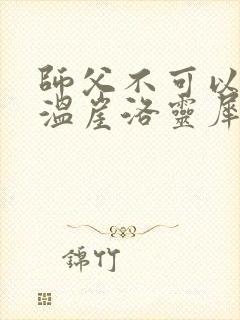 師父不可以
溫崖洛靈犀
錦竹